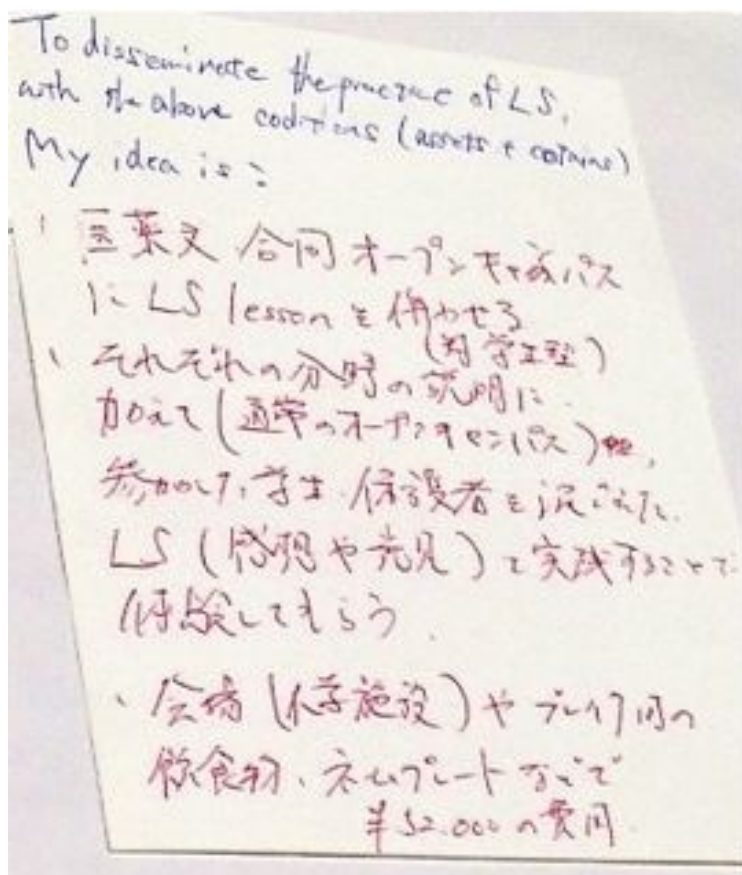 To disseminate the practice of LS,
with the above coditions (assets +
My idea is:
、医薬 合同オープンキャンパス
に LS lesson を併わせる
(対学生型)
、それぞれの分野の説明に
加えて(通常のオープンキャンパス)
参加した学生、保護者を混じえた
LS ( や発見)を実践することで
体験してもらう.
、会場(大学施設)やブレイク用の
飲食物、ネームプレートなどで
¥52.000の費用